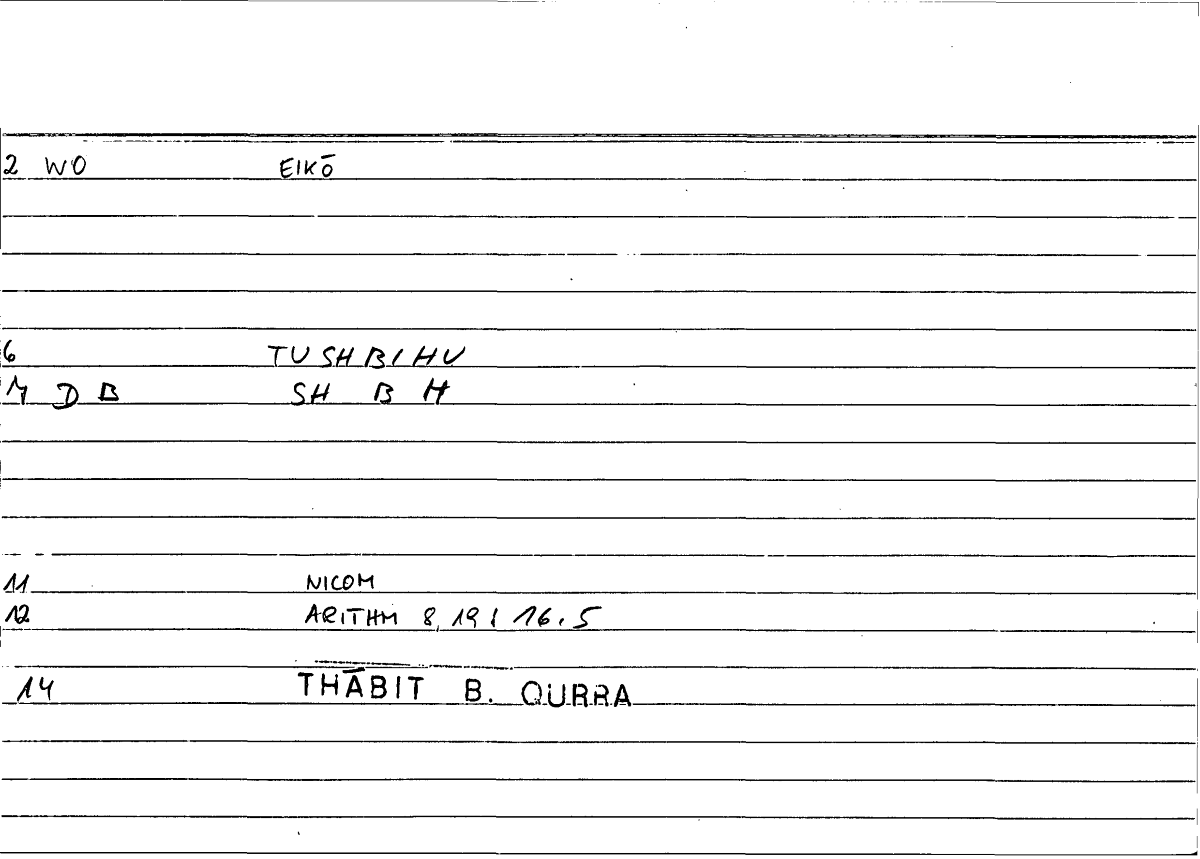 2 WO EIKŌ
6 TUSHBIHU
7 D B SH B H
11 NICOM
12 ARITHM 8,19 ; 16.5
14 THĀBIT B. QURRA